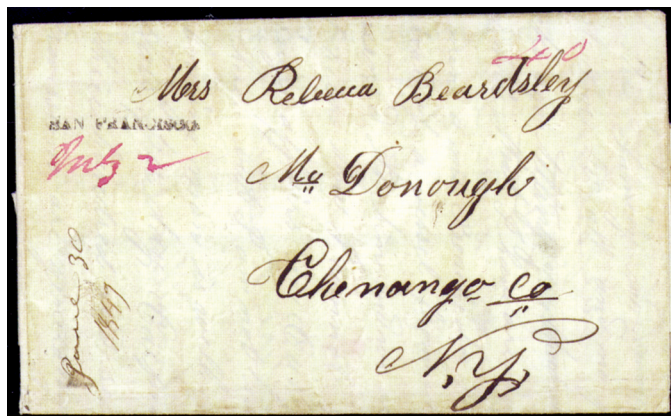 40
Mrs Rebecca Beardsley
SAN FRANCISCO
July 2
Mc Donough
Chenango Co
N.Y.
June 30
1849